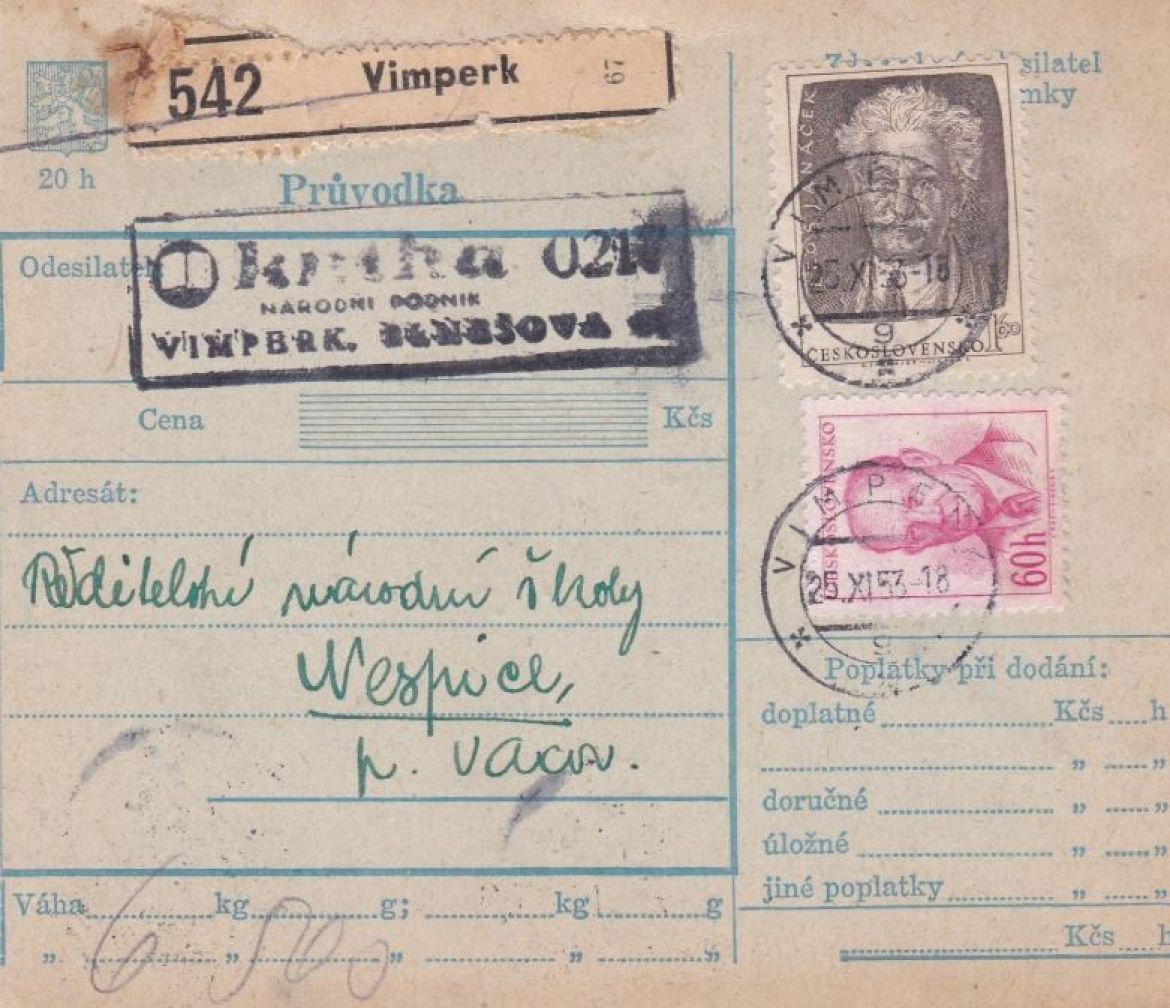 542 Vimperk 67
20 h
Průvodka
silatel
mky
LEOŠ JANÁČEK
ČESKOSLOVENSKO 1 60
VIMPERK
25.XI.53-18
9
Odesilatel
kniha 0217
NÁRODNÍ PODNIK
VIMPERK, BENEŠOVA
Cena Kčs
ČESKOSLOVENSKO
60h
VIMPERK
25.XI.53-18
9
Adresát:
Ředitelství národní školy
Nespice,
p. Vacov.
Poplatky při dodání:
doplatné Kčs h
„ „
doručné „ „
úložné „ „
jiné poplatky „ „
Kčs h
Váha kg g; kg g
„ „ „ „ „
6 500